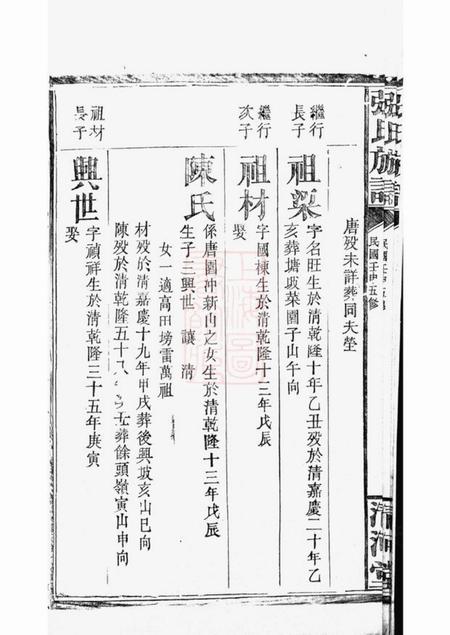 張氏族譜
民國壬申五修
清河堂
唐歿未詳葬同夫塋
繼行
長子
祖梁
字名旺生於清乾隆十年乙丑歿於清嘉慶二十年乙
亥葬塘坡菜園子山午向
繼行
次子
祖材
字國棟生於清乾隆十三年戊辰
娶
陳氏
係唐園冲新山之女生於清乾隆十三年戊辰
生子三興世 讓 清
女一適高田塝雷萬祖
材歿於清嘉慶十九年甲戌葬後興坡亥山巳向
陳歿於清乾隆五十
葬餘頭嶺寅山申向
祖材
長子
興世
字禎祥生於清乾隆三十五年庚寅
娶